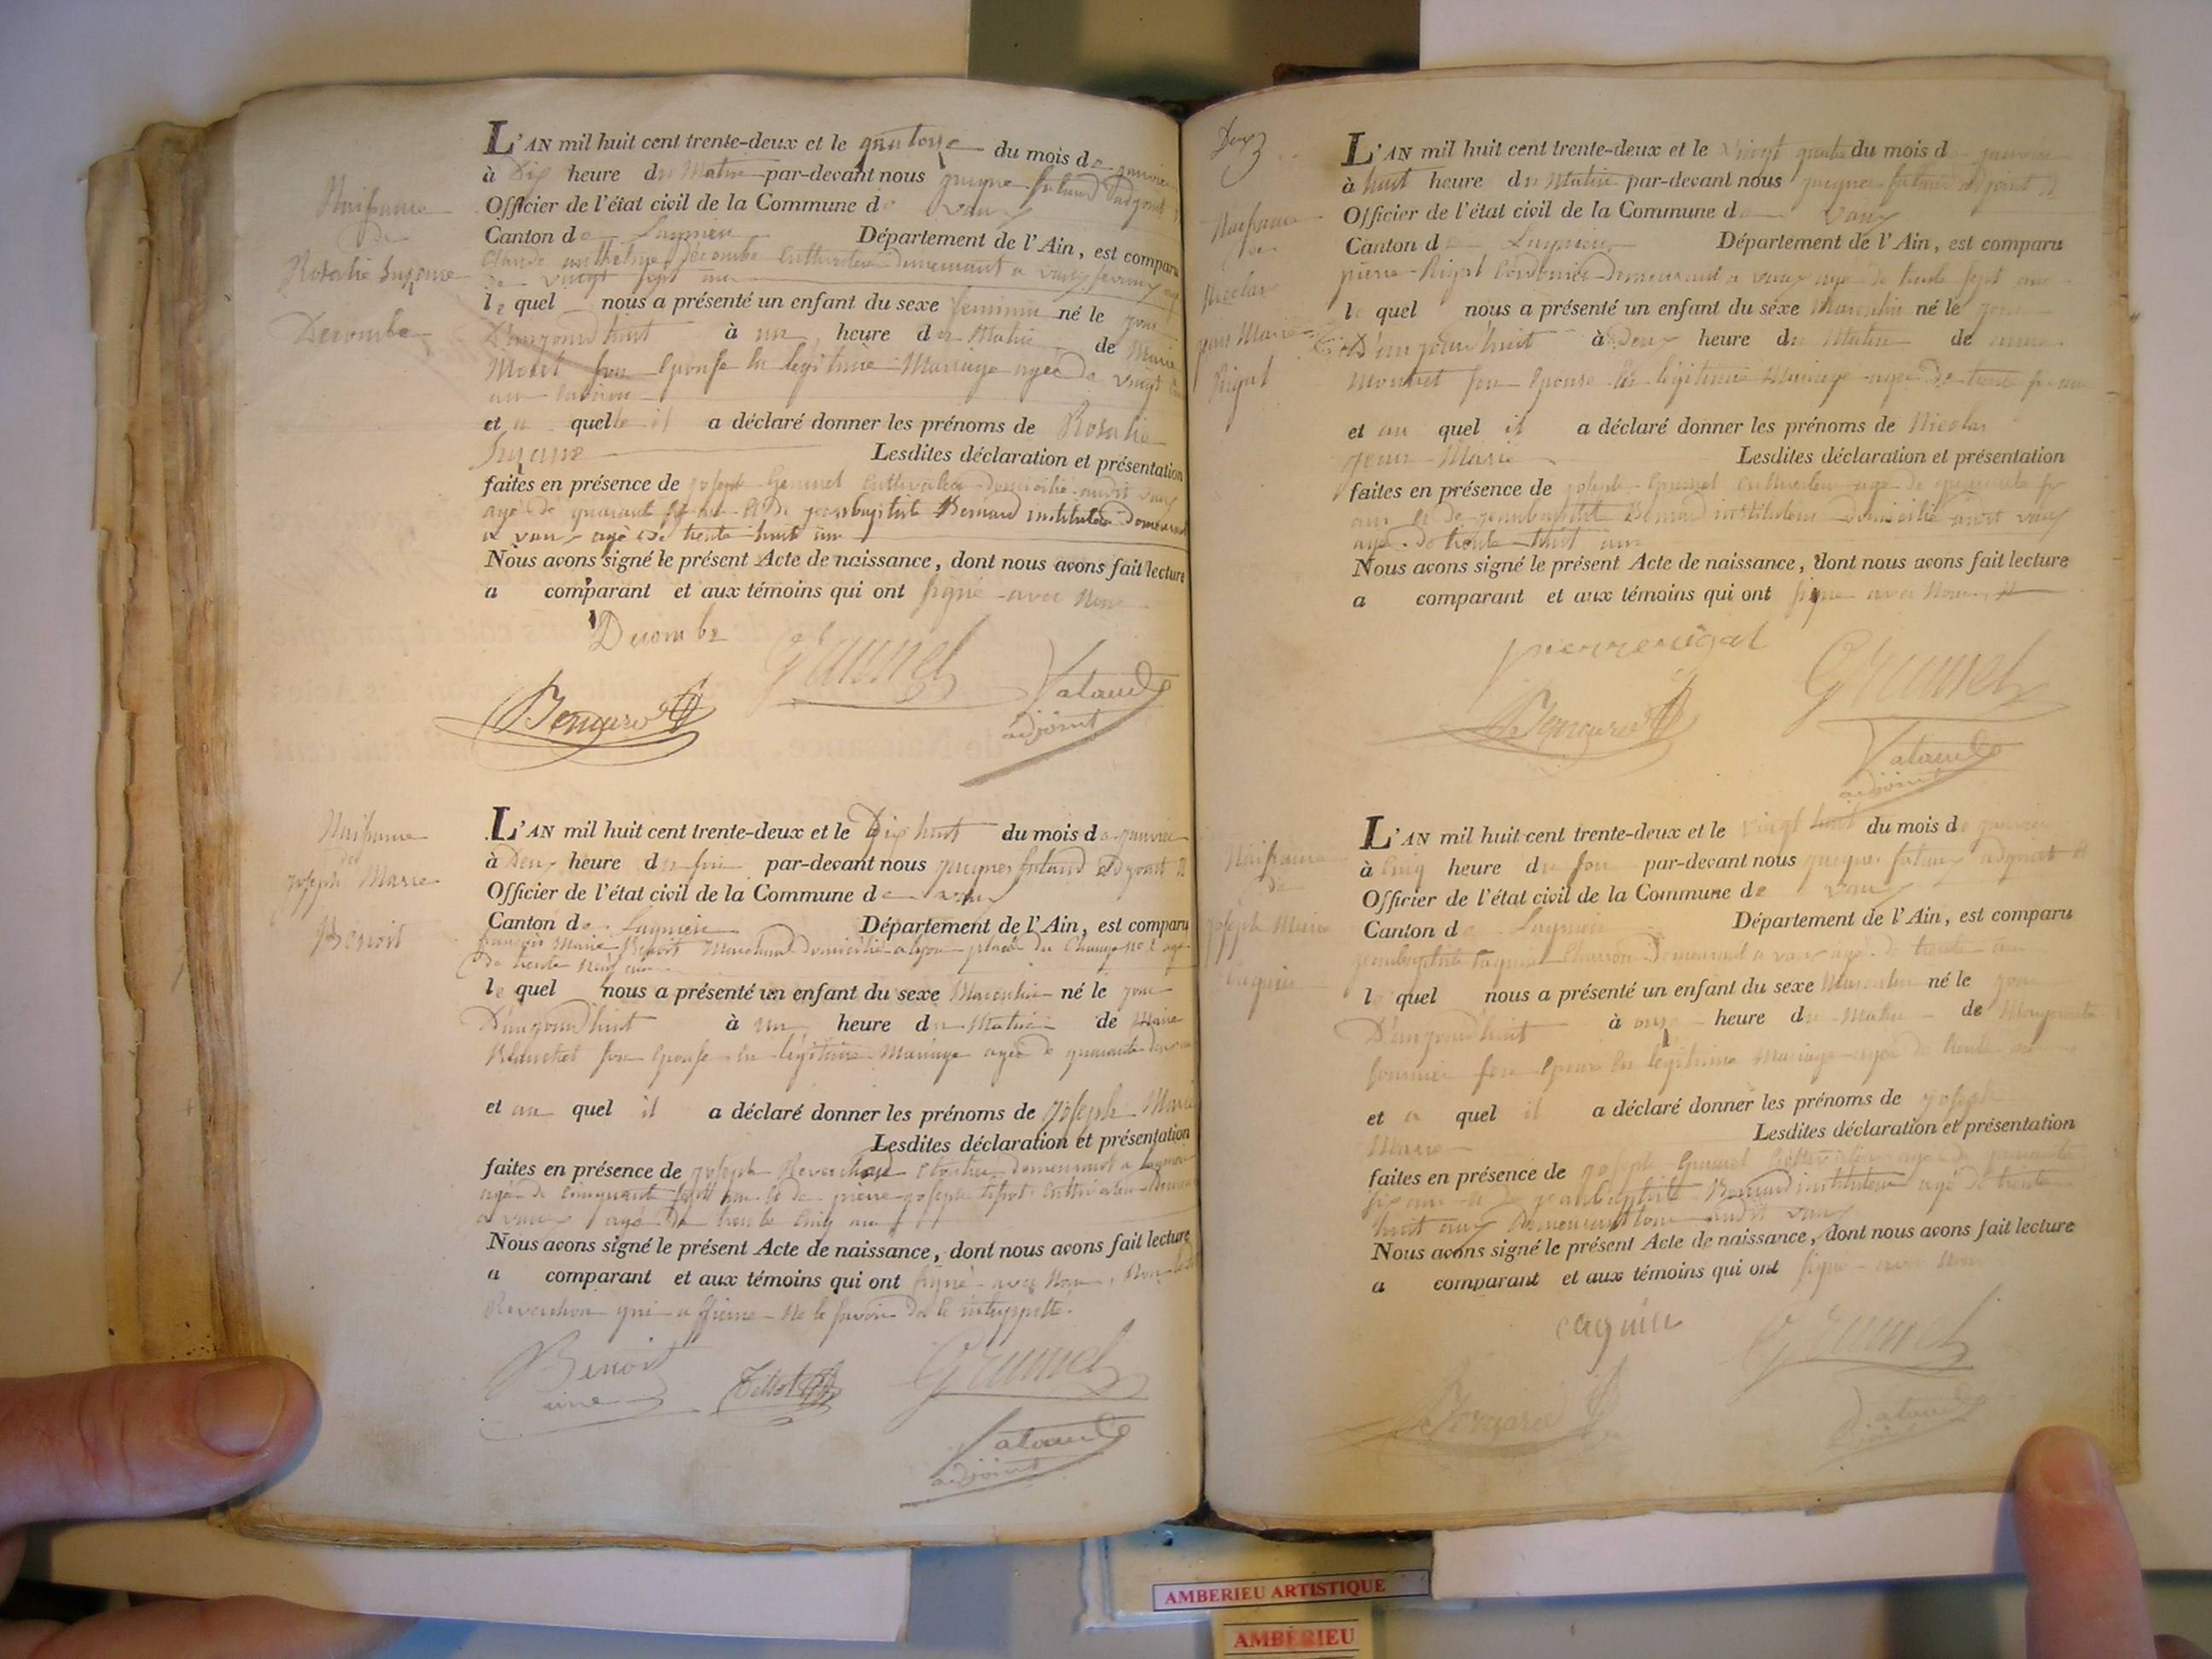 Naissance
de
Rosalie Suzanne
Decombe
L'AN mil huit cent trente-deux et le quatorze du mois de janvier
à Dix heure du Matin par-devant nous
Officier de l'état civil de la Commune de Vaux
Canton de Lagnieu Département de l'Ain, est comparu
Claude anthelme Decombe Cultivateur demeurant a vaux
de vingt sept ans
le quel nous a présenté un enfant du sexe feminin né le jour
D'aujourd'huit à un heure du Matin de Marie
Morel son Epouse en legitime Mariage agée de vingt
et a quelle il a déclaré donner les prénoms de Rosalie
Suzanne Lesdites déclaration et présentation
faites en présence de joseph Grumel Cultivateur domicilié audit vaux
agé de quarant six ans et De jeanbaptiste Bernard instituteur Demeurant
a vaux agé de trente huit ans
Nous avons signé le présent Acte de naissance, dont nous avons fait lecture
a comparant et aux témoins qui ont signé avec Nous
Decombe Grumel
Bernard Vataud
adjoint
Naissance
de
joseph Marie
Benoit
L'AN mil huit cent trente-deux et le Dix huit du mois de janvier
à Deux heure du soir par-devant nous
Officier de l'état civil de la Commune de vaux
Canton de Lagnieu Département de l'Ain, est comparu
françois Marie Benoit Marchand Domicilié a lyon place du Change no 2 agé
de trente neuf ans
le quel nous a présenté un enfant du sexe Masculin né le jour
D'aujourd'huit à un heure du Matin de Marie
Blanchet son Epouse en legitime Mariage agée de quarante deux
et au quel il a déclaré donner les prénoms de joseph Marie
Lesdites déclaration et présentation
faites en présence de joseph Reverchon demeurant a Lagnieu
agé de cinquante sept ans et de pierre joseph tissot Cultivateur
a vaux agé De trente cinq ans
Nous avons signé le présent Acte de naissance, dont nous avons fait lecture
a comparant et aux témoins qui ont signé avec Nous, Non ledit
Reverchon qui a ne le savoir de ce
Benoit Grumel
Vataud
adjoint
Naissance
de
Nicolas
jean Marie
Rigat
L'AN mil huit cent trente-deux et le vingt quatre du mois de janvier
à huit heure du Matin par-devant nous
Officier de l'état civil de la Commune de Vaux
Canton de Lagnieu Département de l'Ain, est comparu
pierre Rigat Cordonier demeurant a vaux agé de trente sept ans
le quel nous a présenté un enfant du séxe Masculin né le jour
D'aujourd'huit à Deux heure du Matin de anne
son Epouse en legitime Mariage agée de trente
et au quel il a déclaré donner les prénoms de Nicolas
jean Marie Lesdites déclaration et présentation
faites en présence de joseph Grumel Cultivateur agé de quarante six
ans et de jeanbaptiste Bernard instituteur Domicilié audit vaux
agé de trente huit ans
Nous avons signé le présent Acte de naissance, dont nous avons fait lecture
a comparant et aux témoins qui ont signé avec Nous
pierre rigat Grumel
Bernard
Vataud
adjoint
Naissance
de
joseph Marie
Caquin
L'AN mil huit cent trente-deux et le vingt huit du mois de janvier
à Cinq heure du soir par-devant nous
Officier de l'état civil de la Commune de vaux
Canton de Lagnieu Département de l'Ain, est comparu
jeanbaptiste Caquin Charron Demeurant a vaux agé de trente ans
le quel nous a présenté un enfant du sexe Masculin né le jour
D'aujourd'huit à onze heure du Matin de Marguerite
son Epouse en legitime Mariage agée de trente
et a quel il a déclaré donner les prénoms de joseph
Marie Lesdites déclaration et présentation
faites en présence de joseph Grumel Cultivateur agé de quarante
six ans et De jeanbaptiste Bernard instituteur agé de trente
huit ans Demeurant tous audit vaux
Nous avons signé le présent Acte de naissance, dont nous avons fait lecture
a comparant et aux témoins qui ont signé avec Nous
caquin Grumel
Bernard Vataud
AMBERIEU ARTISTIQUE
AMBÉRIEU